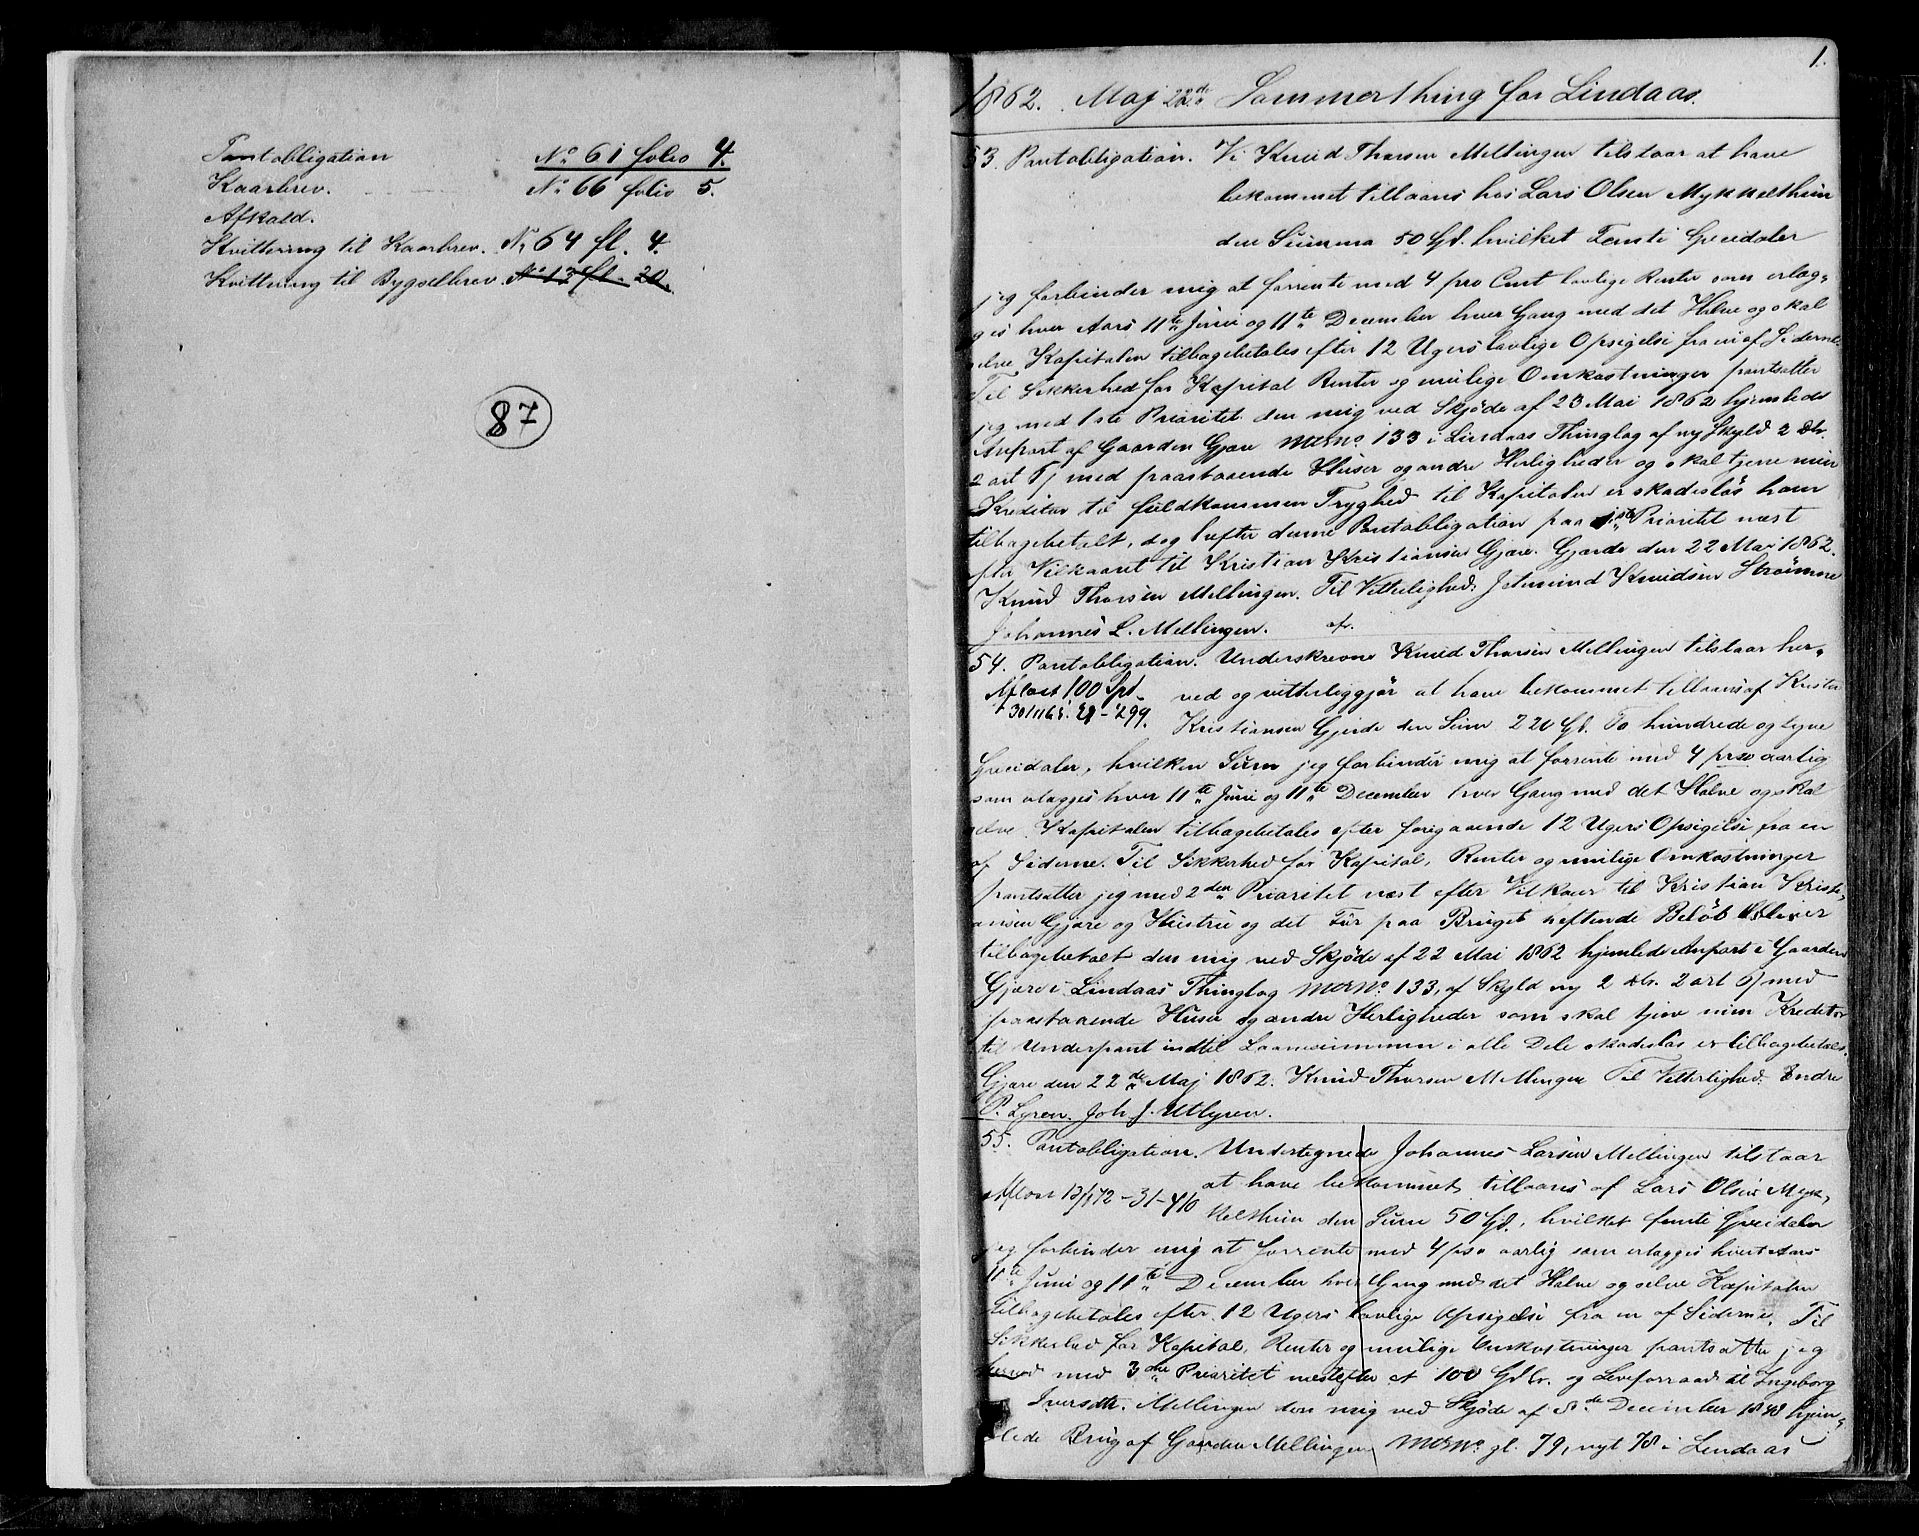 Pantobligation No 61 folio 4.
Kaarbrev. No 66 folio 5.
Afkald.
Kvittering til Kaarbrev. No 64 fl. 4.
Kvittering til Bygselbrev. No 13 fl. 20.
87
1.
1862. Maj 22de Sommerthing for Lindaas.
53. Pantobligation. Vi Knud Thorsen Mellingen tilstaar at have
bekommet tillaans hos Lars Olsen Mykkelthun
den Summa 50 Spd. hvilket Femti Speidaler
jeg forbinder mig at forrente med 4 pro Cent lovlige Renter som erlæg„
ges hver Aars 11te Juni og 11te December hver Gang med det Halve og skal
selve Kapitalen tilbagebetales efter 12 Ugers lovlige Opsigelse fra en af Siderne.
Til Sikkerhed for Kapital Renter og mulige Omkostninger pantsætter
jeg med 1ste Prioritet den mig ved Skjøde af 23 Mai 1862 hjemlede
Anpart af Gaarden Gjære Matrno. 133 i Lindaas Thinglag af ny Skyld 2 Dlr.
2 ort 6 β med paastaaende Huser og andre Herligheder og skal tjene min
Kreditor til fuldkommen Tryghed til Kapitalen er skadesløs ham
tilbagebetalt, dog hefter denne Pantobligation paa 1ste Prioritet næst
efter Vilkaaret til Kristian Kristiansen Gjære. Gjærde den 22 Mai 1862.
Knud Thorsen Mellingen. Til Vitterlighed: Jetmund Knudsen Strømme
Johannes L. Mellingen. afr.
54. Pantobligation. Underskrevne Knud Thorsen Mellingen tilstaar her„
Aflæst 100 Spd. ved og vitterliggjør at have bekommet tillaans af Kristen
Kristiansen Gjerde den Sum 220 Spd. To hundrede og tyve
Speidaler, hvilken Sum jeg forbinder mig at forrente med 4 pro aarlig
som erlægges hver 11te Juni og 11te December hver Gang med det Halve og skal
selve Kapitalen tilbagebetales efter foregaaende 12 Ugers Opsigelse fra en
af Siderne. Til Sikkerhed for Kapital, Renter og mulige Omkostninger
pantsætter jeg med 2den Prioritet næst efter Vilkaar til Kristian Kristi„
ansen Gjære og Hustrue og det Før paa Bruget heftende Beløb bliver
tilbagebetalt den mig ved Skjøde af 22 Mai 1862 hjemlede Anpart i Gaarden
Gjære i Lindaas Thinglag Matrno. 133, af Skyld ny 2 Dlr. 2 ort 6 β med
paastaaende Huse og andre Herligheder som skal tjene min Kreditor
til Underpant indtil Laanesummen i alle Dele skadesløs er tilbagebetalt.
Gjære den 22de Maj 1862. Knud Thorsen Mellingen Til Vitterlighed. Endre
P. Lyren. Joh. J. Utlyren.
55. Pantobligation. Undertegnede Johannes Larsen Mellingen tilstaar
Aflæst 13/1 72-31-410 at have bekommet tillaans af Lars Olsen Myk„
kelthun den Sum 50 Spd., hvilket femti Speidaler
jeg forbinder mig at forrente med 4 pro aarlig som erlægges hvert Aars
11te Juni og 11te December hver Gang med det Halve og selve Kapitalen
tilbagebetales efter 12 Ugers lovlige Opsigelse fra en af Siderne. Til
Sikkerhed for Kapital, Renter og mulige Omkostninger pantsætter jeg
med 3die Prioritet næstefter et 100 Spdlr. og Leveforraad til Ingeborg
Iversdtr. Mellingen den mig ved Skjøde af 8de December 1848 hjem„
lede Brug af Gaarden Mellingen Matrno. gl. 79, nyt 78 i Lindaas